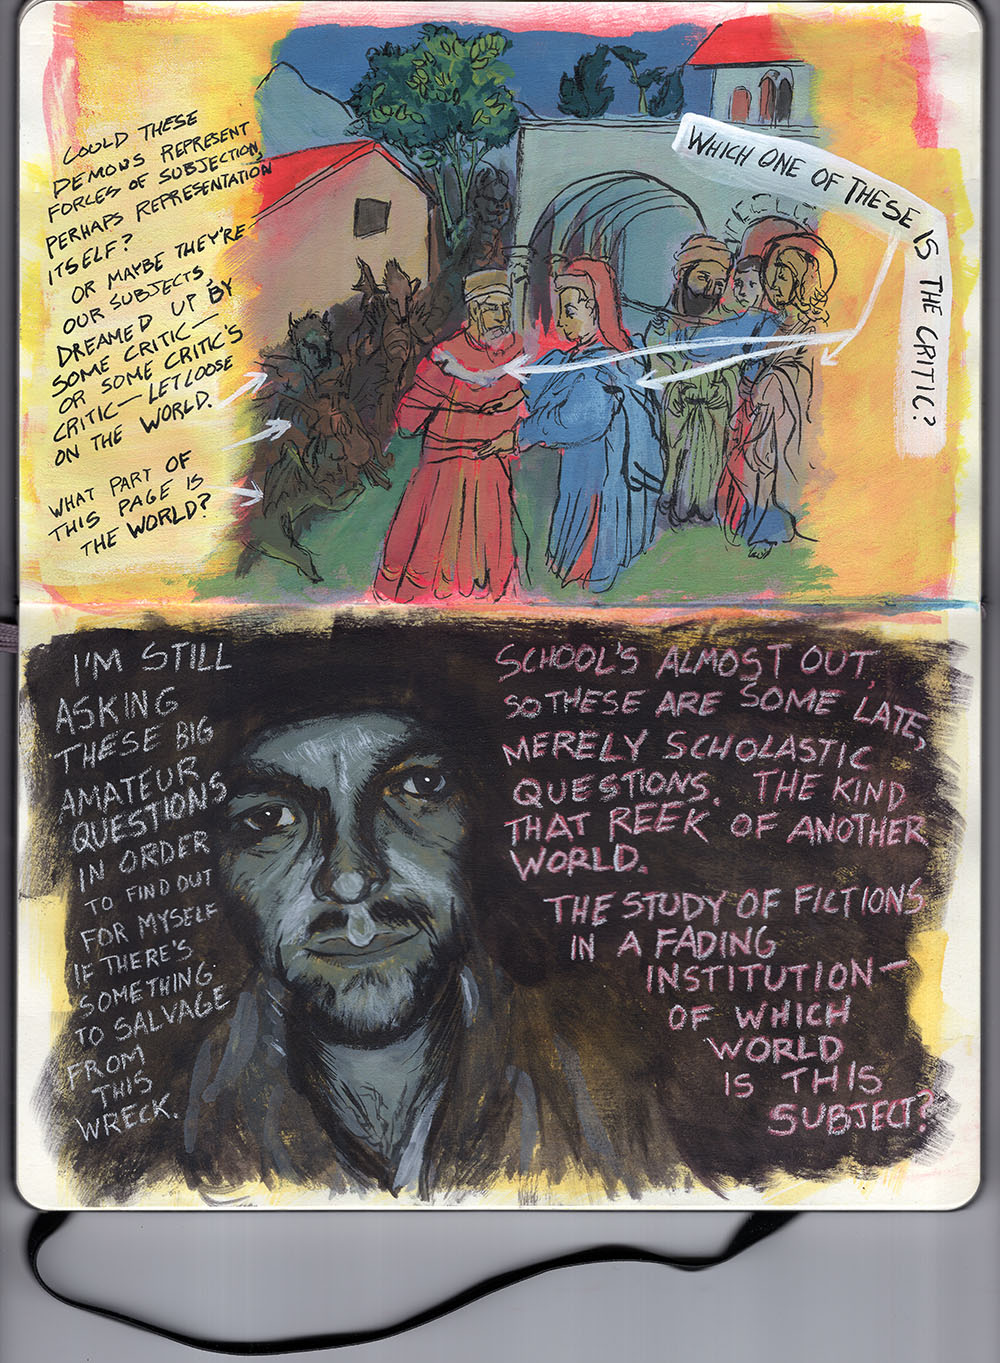 COULD THESE
DEMONS REPRESENT
FORCES OF SUBJECTION,
PERHAPS REPRESENTATION
ITSELF?
OR MAYBE THEY'RE
OUR SUBJECTS,
DREAMED UP BY
SOME CRITIC—
OR SOME CRITIC'S
CRITIC—LET LOOSE
ON THE WORLD.
WHAT PART OF
THIS PAGE IS
THE WORLD?
WHICH ONE OF THESE IS THE CRITIC?
I'M STILL
ASKING
THESE BIG
AMATEUR
QUESTIONS
IN ORDER
TO FIND OUT
FOR MYSELF
IF THERE'S
SOMETHING
TO SALVAGE
FROM
THIS
WRECK.
SCHOOL'S ALMOST OUT,
SO THESE ARE SOME LATE,
MERELY SCHOLASTIC
QUESTIONS. THE KIND
THAT REEK OF ANOTHER
WORLD.
THE STUDY OF FICTIONS
IN A FADING
INSTITUTION—
OF WHICH
WORLD
IS THIS
SUBJECT?